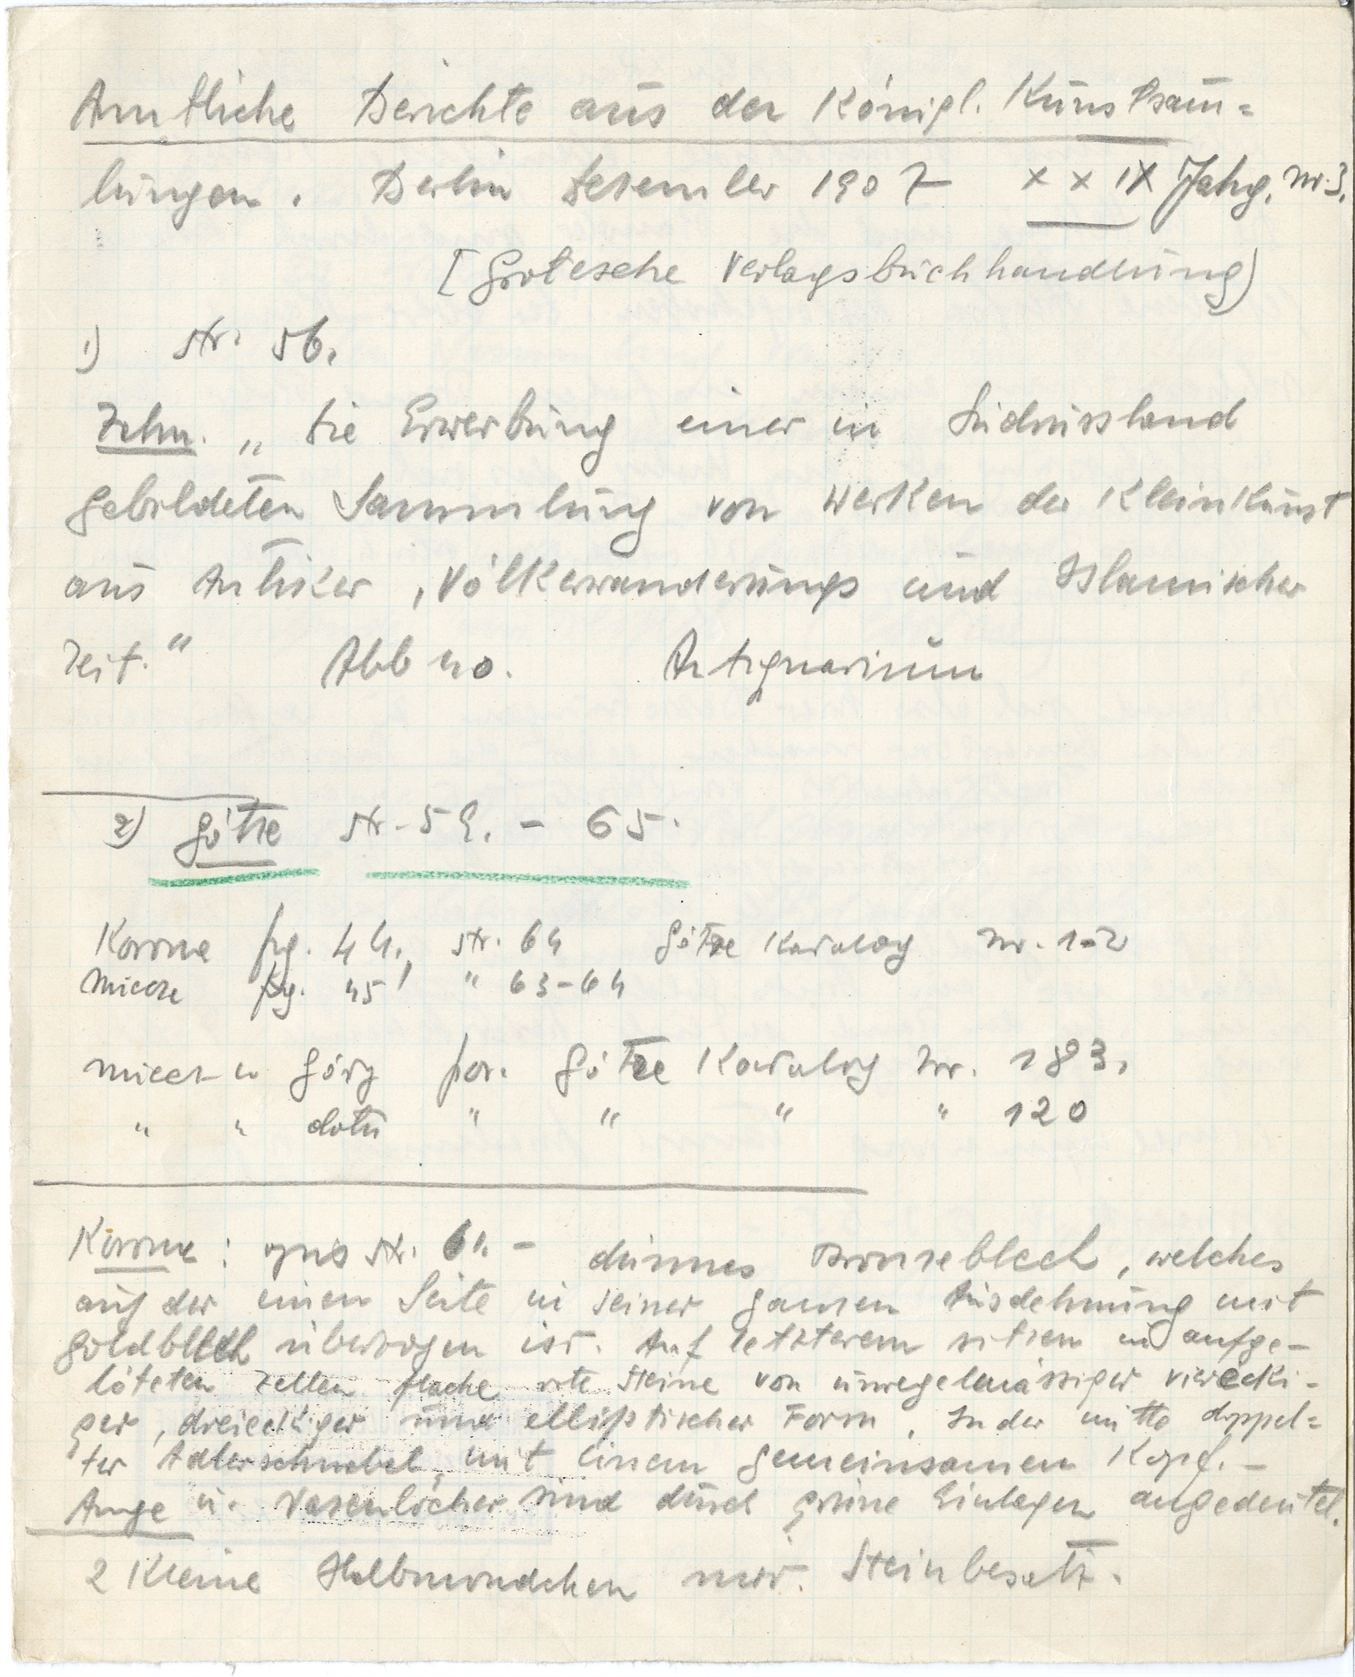 Amtliche Berichte aus der Königl. Kunstsam=
lungen. Berlin Dezember 1907 XXIX Jahrg. Nr. 3.
[Grotesche Verlagsbuchhandlung)
1) str. 56.
Zahn. „ Die Erwerbung einer in Südrussland
gebildeten Sammlung von Werken der Kleinkunst
aus Antiker, Völkerwanderungs und Islamischer
Zeit." Abb 40. Antiquarium
2) Götze str. 59. - 65.
Korona fig. 44., str. 64 Götze Katalog Nr. 1-2
fig. 45, " 63-64
Götze Katalog Nr. 183.
" " " " " " 120
Korona: opis str. 61. - dünnes Bronzeblech, welches
auf der einen Seite in seiner ganzen Ausdehnung mit
Goldblech überzogen ist. Auf letzterem sitzen in aufge-
löteten Zellen flache rote Steine von unregelmässiger vierecki-
ger, dreieckiger und elliptischer Form, In der mitte doppel=
ter Adlerschnabel, mit einem gemeinsamen Kopf. -
Auge u. Nasenlöcher sind durch grüne Einlagen angedeutet.
2 Kleine Halbmondchen mit Steinbesatz.